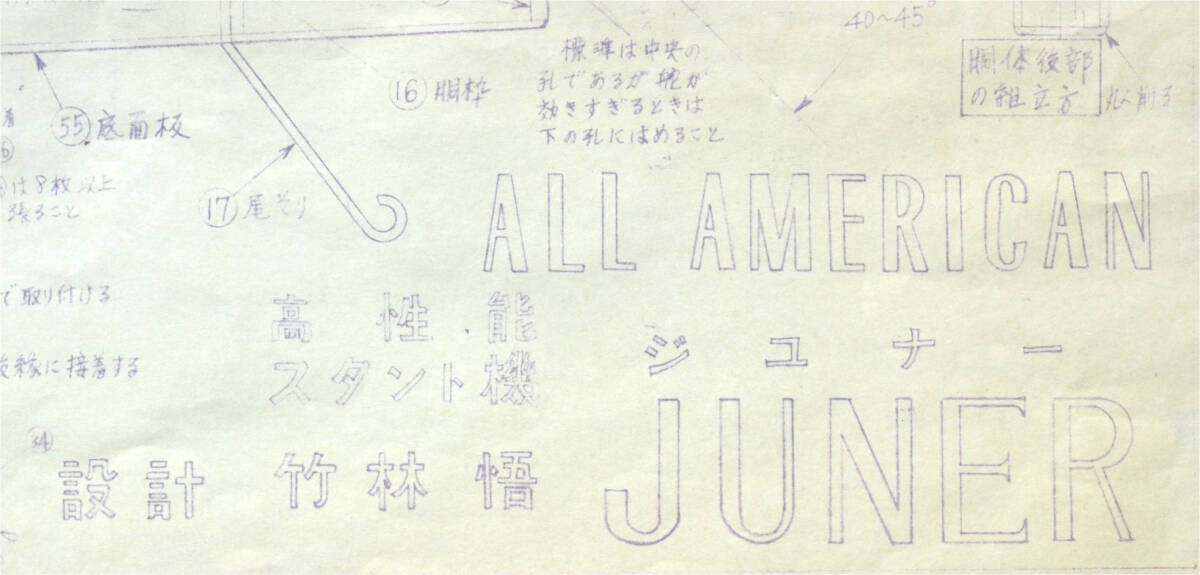 40~45°
標準は中央の
孔であるが舵が
効きすぎるときは
下の孔にはめること
胴体後部
の組立方
丸く削る
16 胴枠
55 底面板
着
6
は8枚以上
張ること
17 尾そり
ALL AMERICAN
で取り付ける
高性能
スタント機
ジュナー
JUNER
後縁に接着する
34
設計 竹林 悟